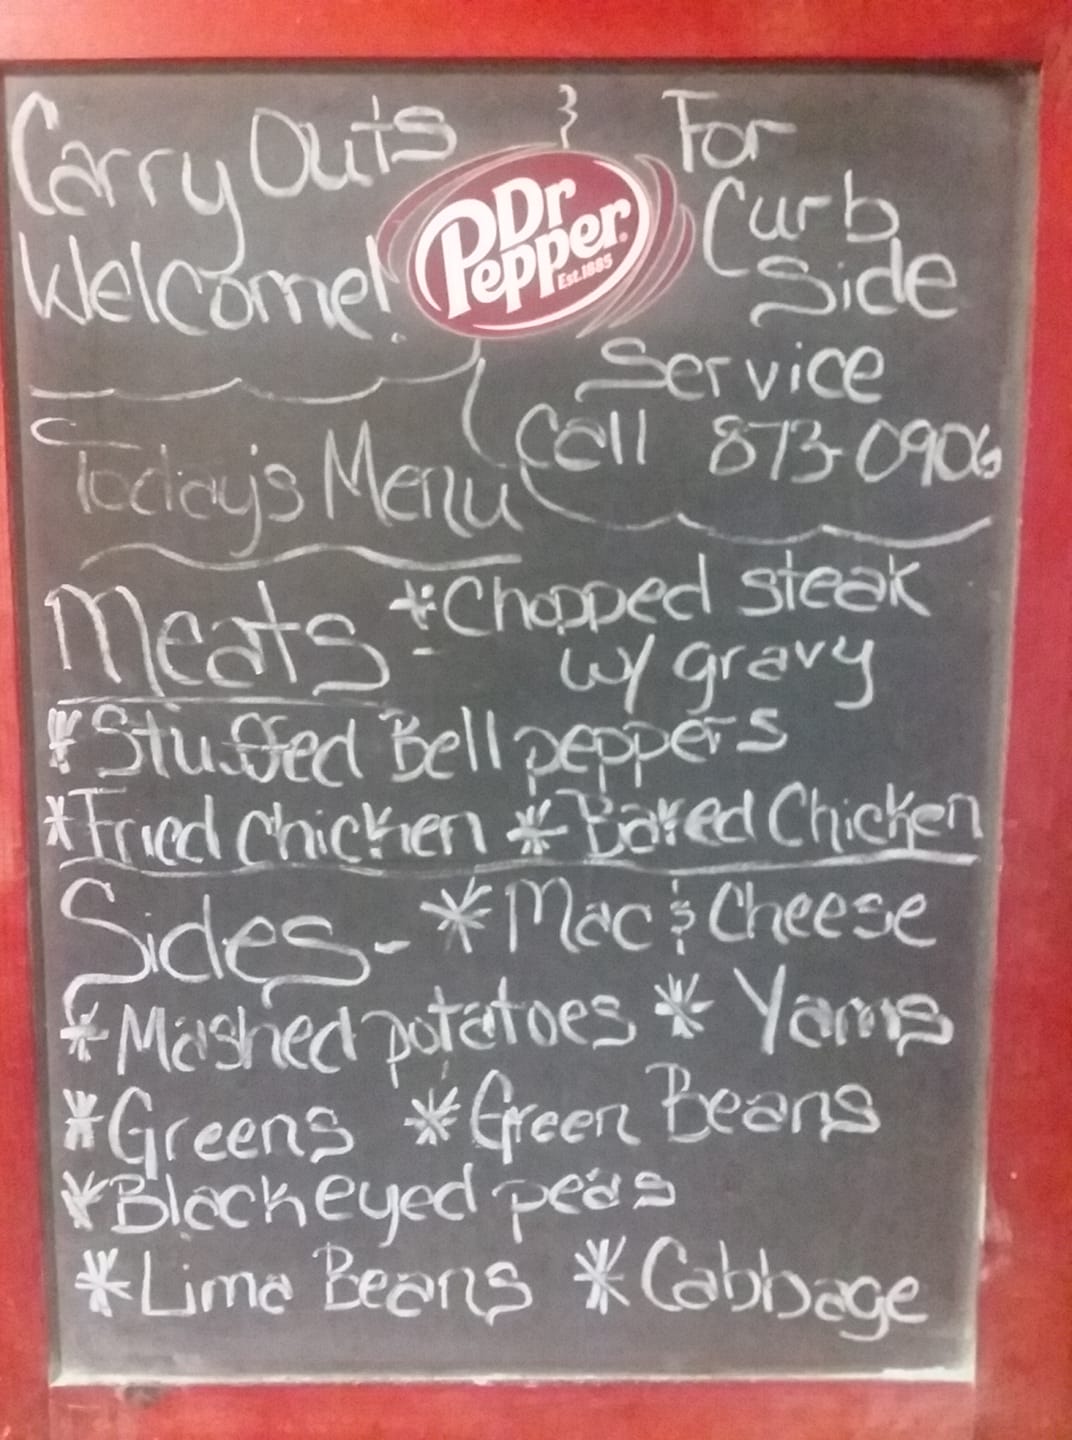 Carry Outs
Welcome!
&
Dr
Pepper
Est.1885
For
Curb
Side
Service
Call 873-0906
Today's Menu
Meats - *Chopped steak
w/ gravy
*Stuffed Bell peppers
*Fried chicken *Baked Chicken
Sides - *Mac & Cheese
*Mashed potatoes *Yams
*Greens *Green Beans
*Black eyed peas
*Lima Beans *Cabbage